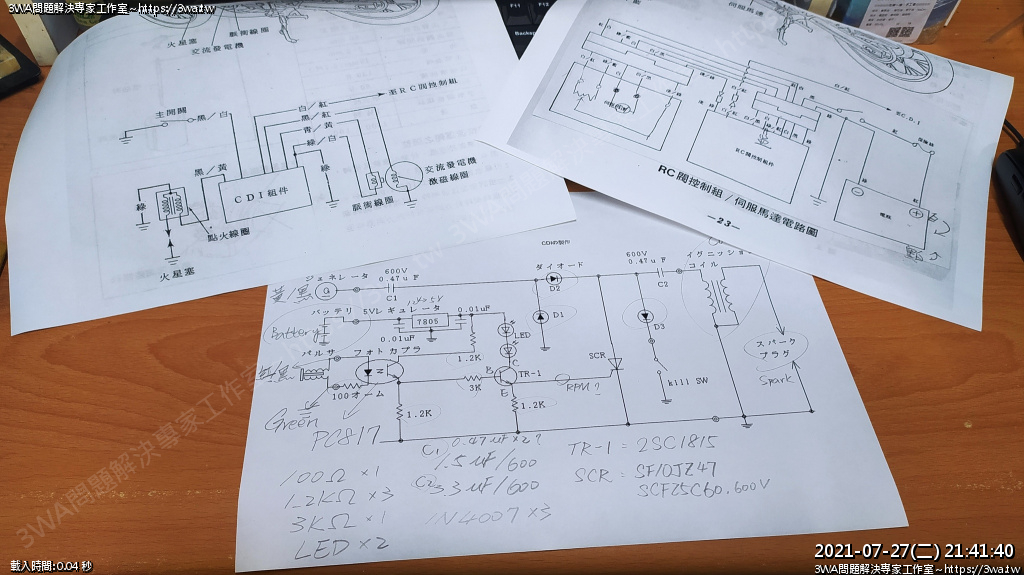 3WA問題解決專家工作室~https://3wa.tw
F11
火星塞
脈衝線圈
交流發電機
主開關
黑／白
白／紅
至RC閥控制組
黑／紅
青／黃
綠／白
黑／黃
綠
CDI組件
綠
交流發電機
激磁線圈
脈衝線圈
點火線圈
火星塞
伺服馬達
RC閥控制組件
電瓶
RC閥控制組／伺服馬達電路圖
—23—
CDIの製作
ジェネレータ
600V
0.47uF
C1
ダイオード
D2
600V
0.47uF
C2
イグニッション
コイル
バッテリ
5Vレギュレータ
7805
0.01uF
0.01uF
Battery
LED
D1
D3
スパーク
プラグ
Spark
パルサ
フォトカプラ
1.2K
100オーム
3K
B
C
E
TR-1
SCR
RPM?
kill SW
1.2K
1.2K
Green
PC817
100Ω ×1
1.2KΩ ×3
3KΩ ×1
LED ×2
C1 0.47uF×2?
1.5uF/600
C2 3.3uF/600
1N4007 ×3
TR-1 = 2SC1815
SCR = SF10JZ47
SCF25C60.600V
載入時間:0.04 秒
2021-07-27(二) 21:41:40
3WA問題解決專家工作室~https://3wa.tw